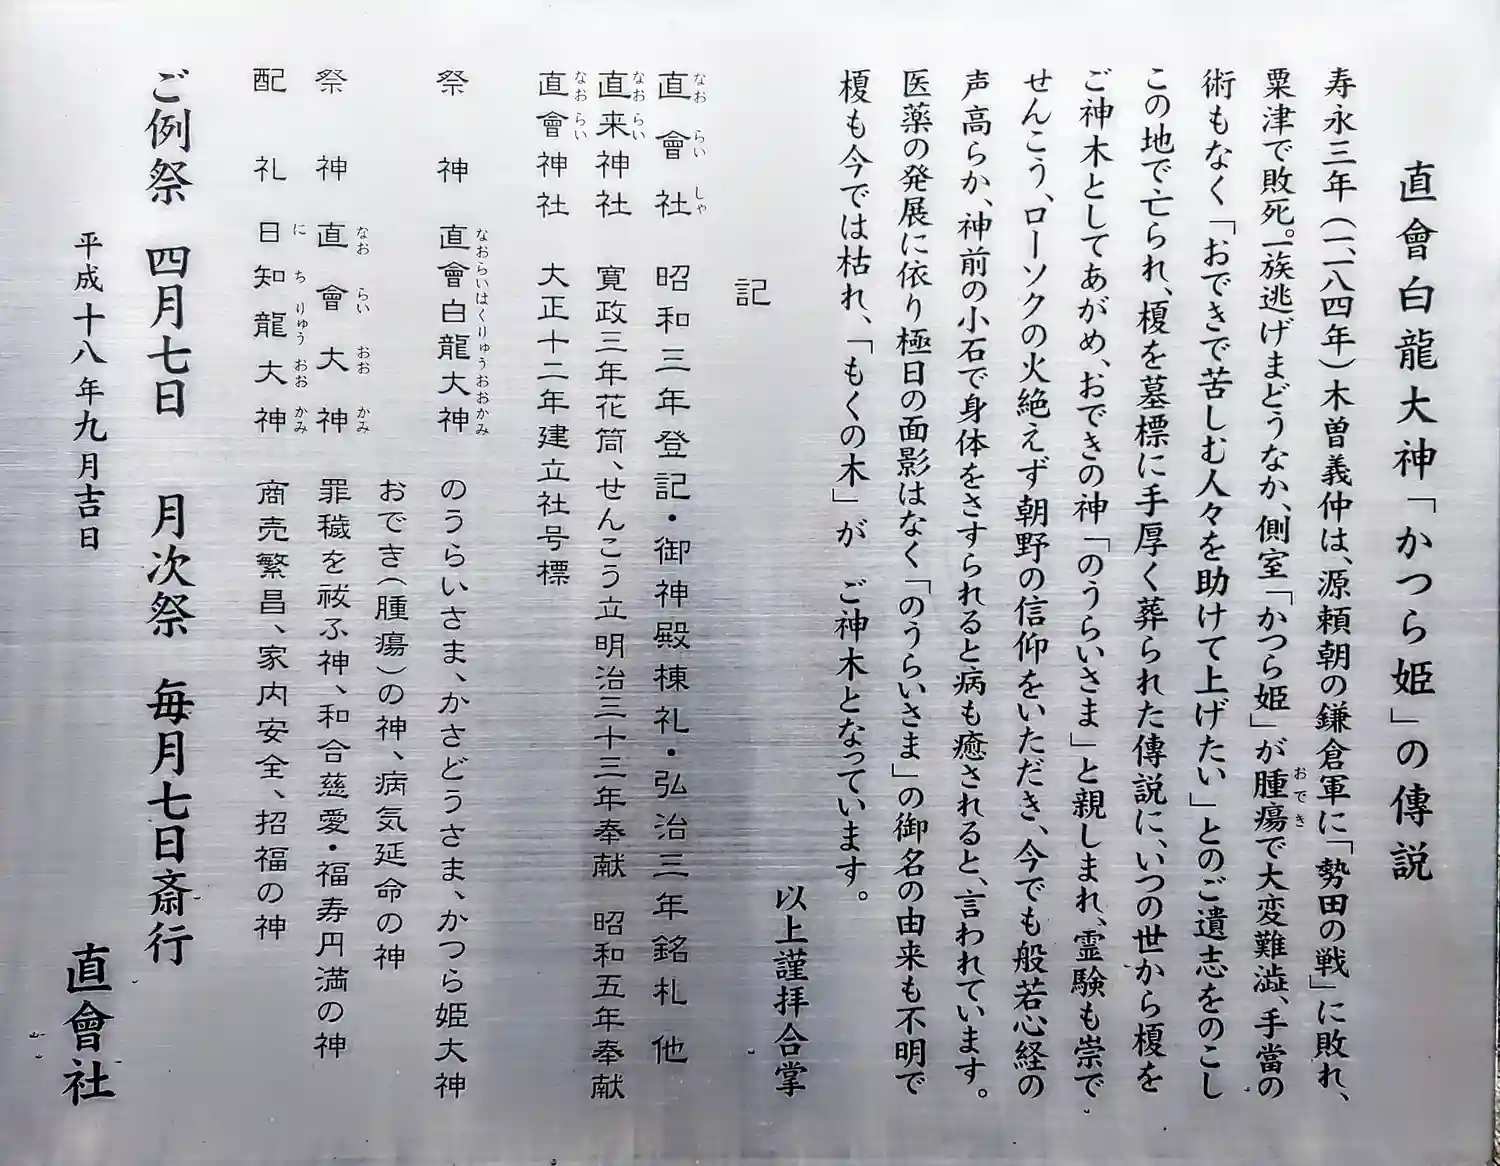 直會白龍大神「かつら姫」の傳説
寿永三年（一、一八四年）木曽義仲は、源頼朝の鎌倉軍に「勢田の戦」に敗れ、
粟津で敗死。一族逃げまどうなか、側室「かつら姫」が腫瘍で大変難澁、手當の
おでき
術もなく「おできで苦しむ人々を助けて上げたい」とのご遺志をのこし
この地で亡られ、榎を墓標に手厚く葬られた傳説に、いつの世から榎を
ご神木としてあがめ、おできの神「のうらいさま」と親しまれ、霊験も崇で
せんこう、ローソクの火絶えず朝野の信仰をいただき、今でも般若心経の
声高らか、神前の小石で身体をさすられると病も癒されると、言われています。
医薬の発展に依り極日の面影はなく「のうらいさま」の御名の由来も不明で
榎も今では枯れ、「もくの木」が　ご神木となっています。
以上謹拝合掌
記
直會社　昭和三年登記・御神殿棟礼・弘治三年銘札　他
なおらいしゃ
直来神社　寛政三年花筒、せんこう立明治三十三年奉献　昭和五年奉献
なおらい
直會神社　大正十二年建立社号標
なおらい
祭神　直會白龍大神　のうらいさま、かさどうさま、かつら姫大神
なおらいはくりゅうおおかみ
おでき（腫瘍）の神、病気延命の神
祭神　直會大神　罪穢を祓ふ神、和合慈愛・福寿円満の神
なおらいおおかみ
配礼　日知龍大神　商売繁昌、家内安全、招福の神
にちりゅうおおかみ
ご例祭　四月七日　月次祭　毎月七日斎行
平成十八年九月吉日
直會社